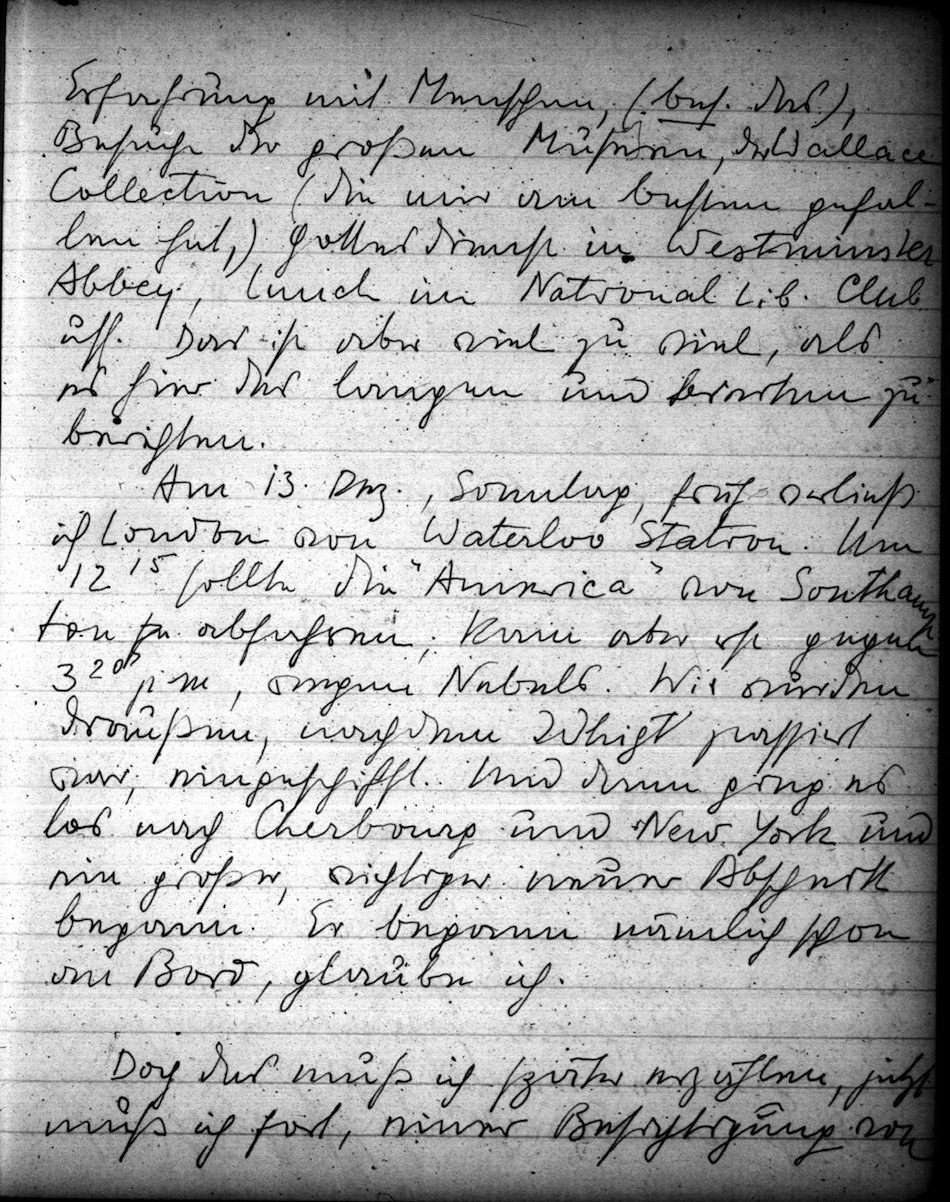 Erfahrung mit Menschen, (bes. das),
Besuche der großen Museen, der Wallace
Collection (die mir am besten gefal-
len hat,) Gottesdienst in Westminster
Abbey, lunch im National Lib. Club
usf. Das ist aber viel zu viel, als
es hier des langen und breiten zu
berichten.
Am 13. Dez., Sonntag, früh verließ
ich London von Waterloo Station. Um
12 15 sollte die "America" von Southamp
ton abfahren, kam aber erst gegen
3 20 pm, wegen Nebels. Wir wurden
draußen, nachdem Whigt passiert
war, eingeschifft. Und dann ging es
los nach Cherbourg und New York und
ein großer, wichtiger neuer Abschnitt
begann. Er begann nämlich schon
an Bord, glaube ich.
Doch das muß ich später erzählen, jetzt
muß ich fort, einer Besichtigung von